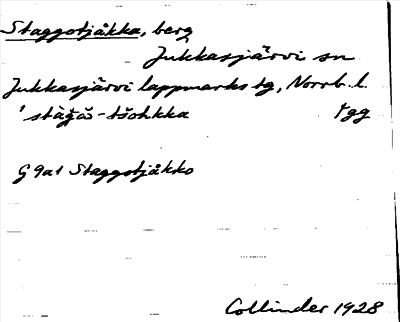 Staggotjåkka, berg
Jukkasjärvi sn
Jukkasjärvi lappmarks tg, Norrb. l.
' stàǧǎš-tšohkka
G 9a1 Staggotjåkko
Collinder 1928